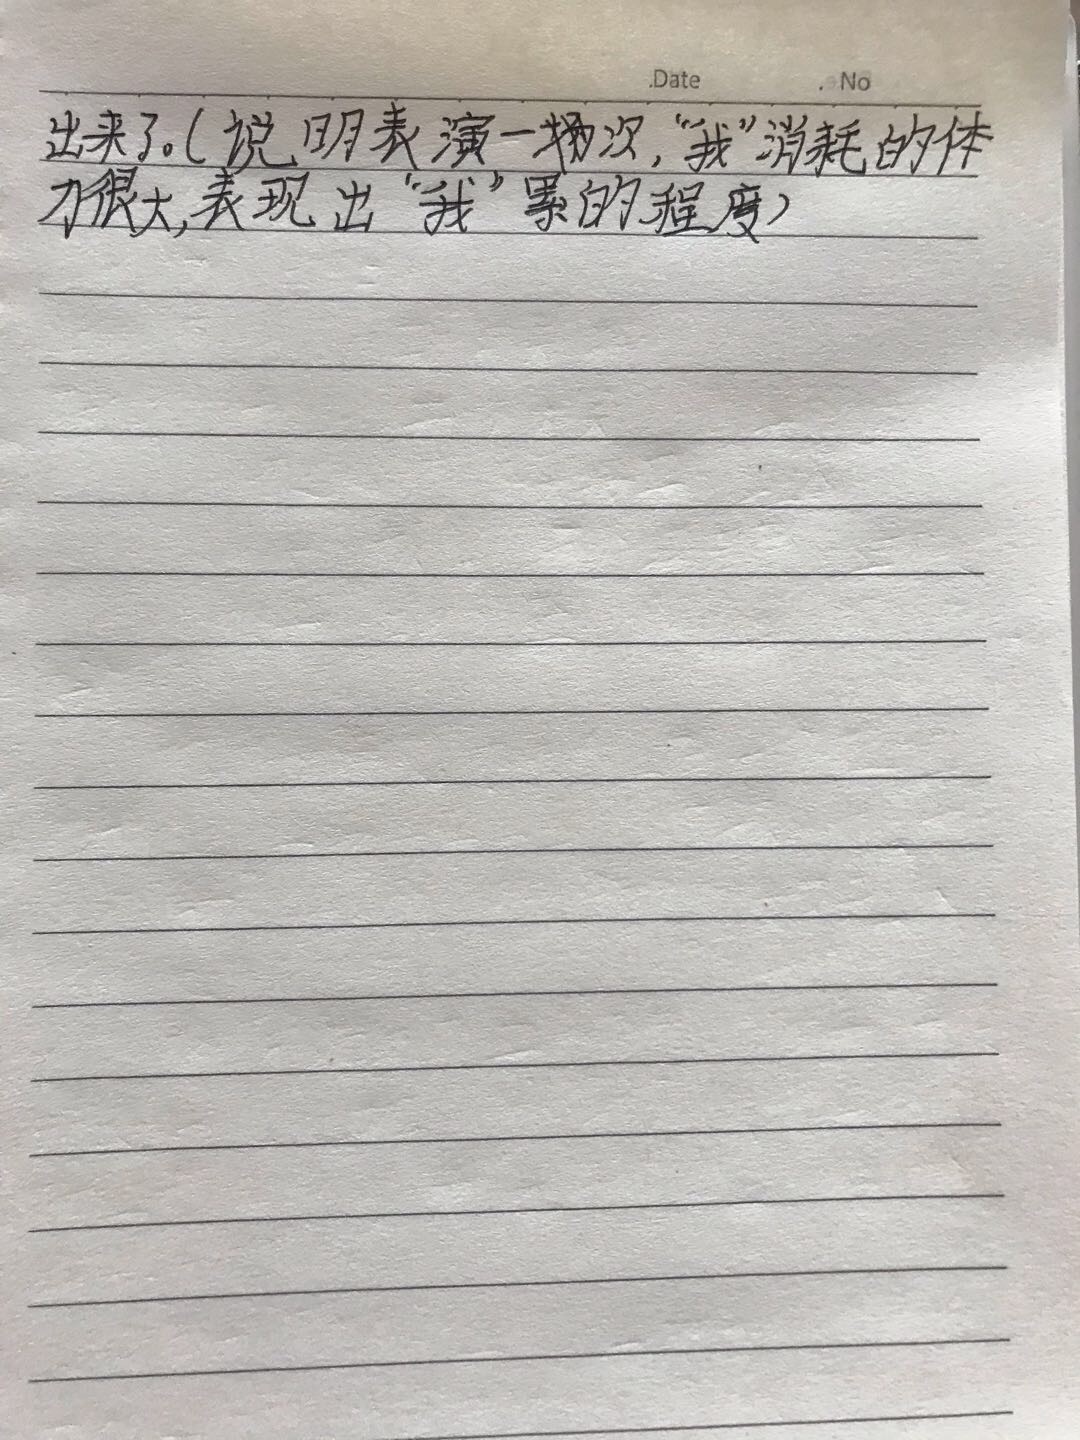 .Date .No
出来了。(说明表演一场次,“我”消耗的体
力很大,表现出“我”累的程度)